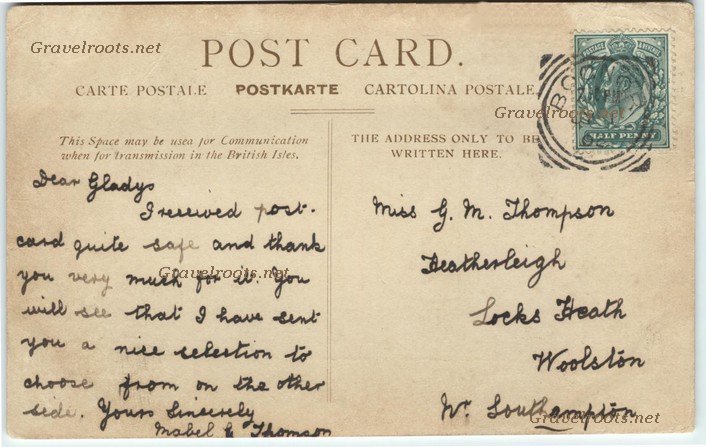 Gravelroots.net
POST CARD.
CARTE POSTALE POSTKARTE CARTOLINA POSTALE.
POSTAGE & REVENUE
HALF PENNY
Gravelroots.net
This Space may be used for Communication
when for transmission in the British Isles.
THE ADDRESS ONLY TO BE
WRITTEN HERE.
Dear Gladys
I received post-
card quite safe and thank
you very much for it. You
Gravelroots.net
will see that I have sent
you a nise selection to
choose from on the other
side. Yours Sincerely
Mabel E Thomson
Miss G. M. Thompson
Heatherleigh
Locks Heath
Woolston
Nr. Southampton
Gravelroots.net